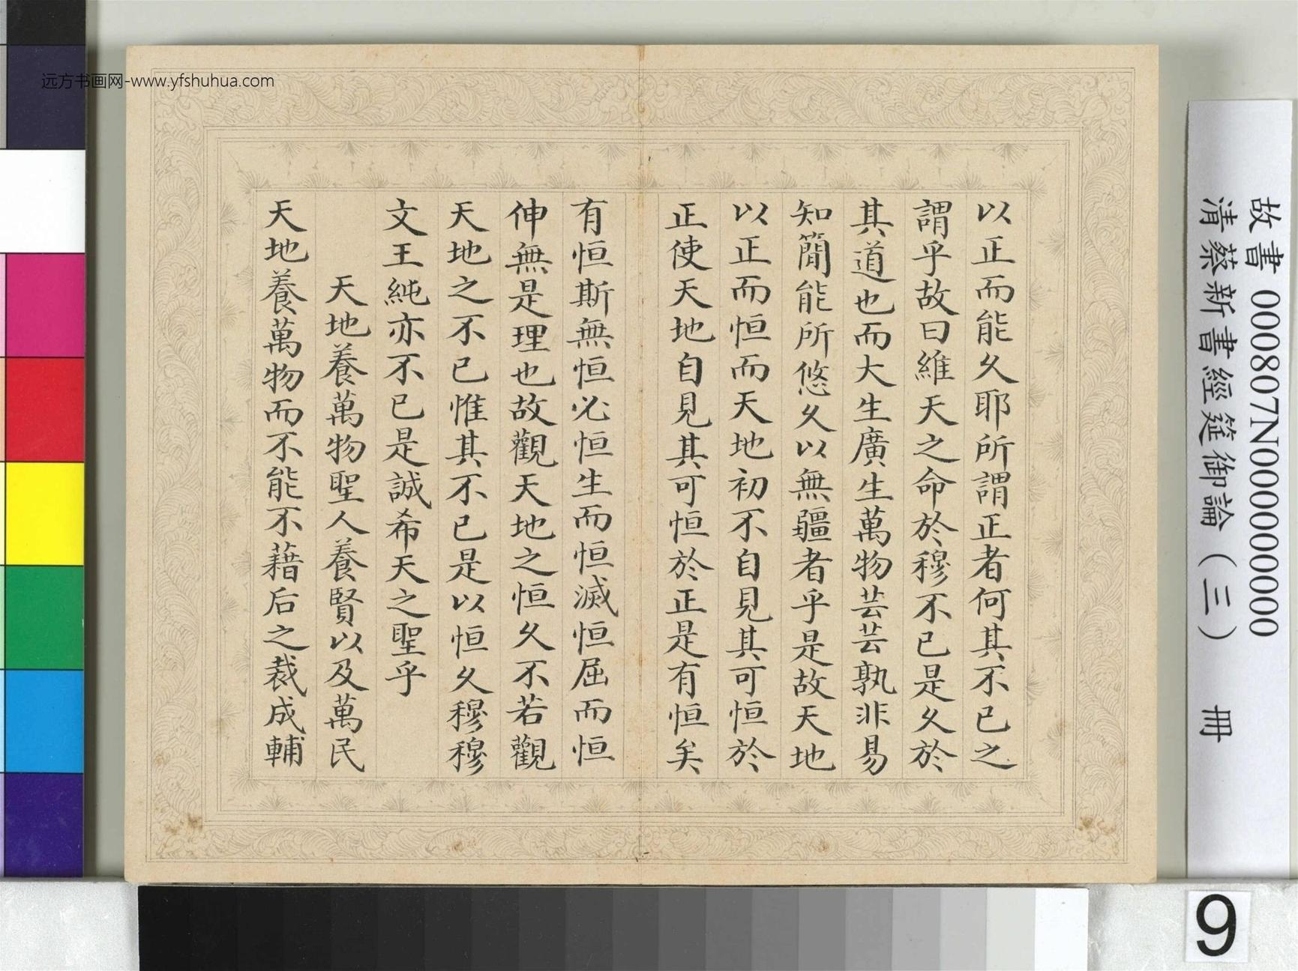 远方书画网-www.yfshuhua.com
以正而能久耶所謂正者何其不已之
謂乎故曰維天之命於穆不已是久於
其道也而大生廣生萬物芸芸孰非易
知簡能所悠久以無疆者乎是故天地
以正而恒而天地初不自見其可恒於
正使天地自見其可恒於正是有恒矣
有恒斯無恒必恒生而恒滅恒屈而恒
伸無是理也故觀天地之恒久不若觀
天地之不已惟其不已是以恒久穆穆
文王純亦不已是誠希天之聖乎
天地養萬物聖人養賢以及萬民
天地養萬物而不能不藉后之裁成輔
故書 000807N000000000
清蔡新書經筵御論(三) 冊
9